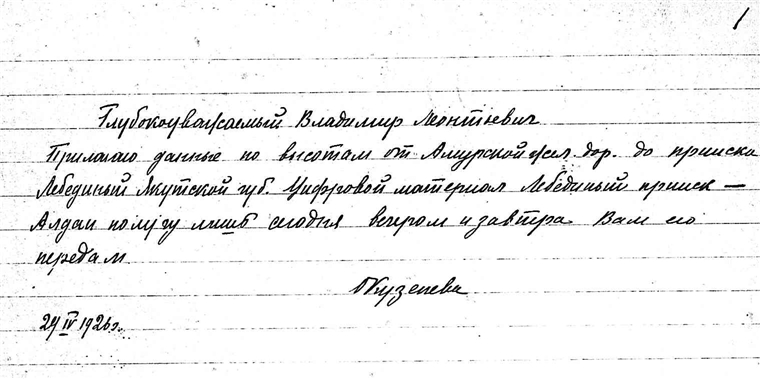 1
Глубокоуважаемый Владимир Леонтьевич
Прилагаю данные по высотам от Амурской жел. дор. до прииска
Лебединый Якутской губ. Цифровой материал Лебединый прииск —
Алдан получу лишь сегодня вечером и завтра Вам его
передам
ОКузенева
24 IV 1926 г.